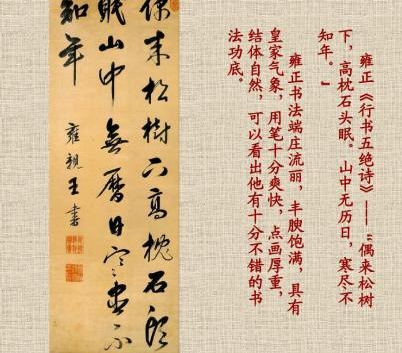 雍正《行书五绝诗》——“偶来松树
下，高枕石头眠。山中无历日，寒尽不
知年。”
雍正书法端庄流丽，丰腴饱满，具有
皇家气象，用笔十分爽快，点画厚重，
结体自然，可以看出他有十分不错的书
法功底。
偶来松樹下高枕石頭
眠山中無曆日寒盡不
知年
雍親王書